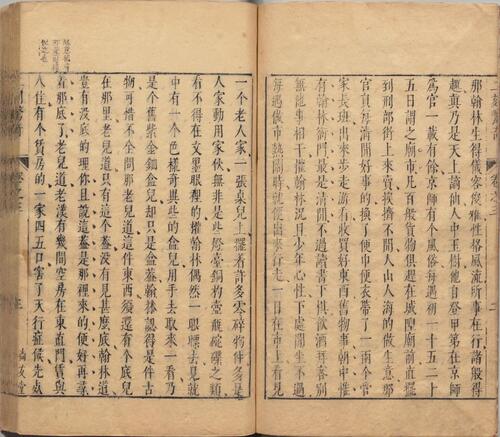 那翰林生得儀容俊雅性格風流所事在行諸般得
趣真乃是天上謫仙人中玉樹他自登甲第在京師
為官一載有餘京師有個風俗每遇初一十五二十
五日謂之廟市凡百般貨物俱趕在城隍廟前直擺
到刑部街上來賣挨擠不開人山人海的做生意那
官員每清閒好事的換了便巾便衣帶了一兩个管
家長班出來步走游看收買好東西舊物事朝中惟
有翰林衙門最是清閒不過讀書下棋飲酒拜客別
無他事相干權翰林况且少年心性下處閒坐不過
每遇做市熱鬧時就便出來行走一日在市上看見
一个老人家一張桌兒上擺着許多零碎物件多是
人家動用家伙無非是些燈臺銅杓壺瓶碗碟之類
看不得在文墨眼裡的權翰林偶然一眼瞟去見就
中有一个色樣奇異些的盒兒用手去取來一看乃
是个舊紫金鈿盒兒却只是盒蓋翰林認得是件古
物可惜不全問那老兒道這件東西須還有个底兒
在那里老兒道只有這个蓋沒有見甚麽底翰林道
豈有沒底的理你且說這蓋是那里來的便好再尋
着那底了老兒道老漢有幾間空房在東直門賃與
人住有个賃房的一家四五口害了天行症候先死